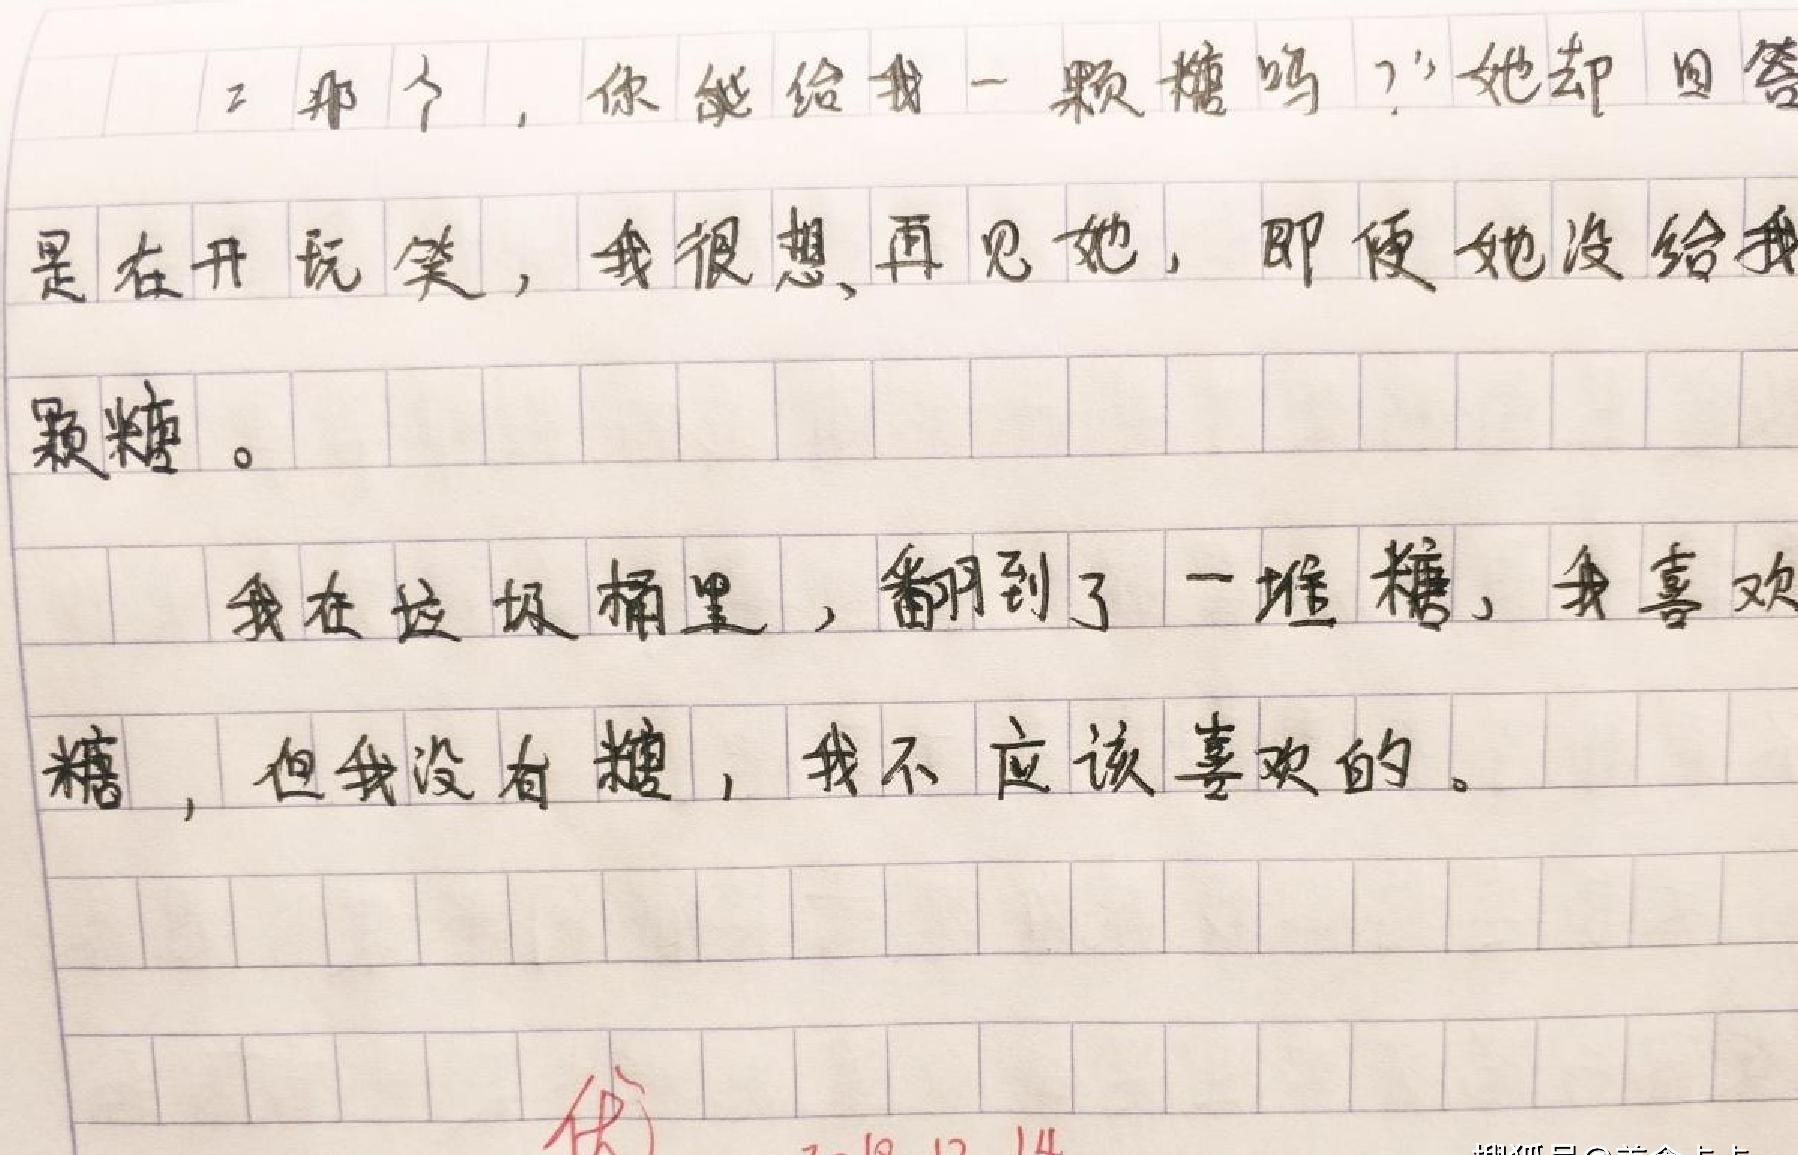 “那个，你能给我一颗糖吗？”她却回答
是在开玩笑，我很想、再见她，即便她没给我
颗糖。
我在垃圾桶里，翻到了一堆糖，我喜欢
糖，但我没有糖，我不应该喜欢的。
优
2018.12.14